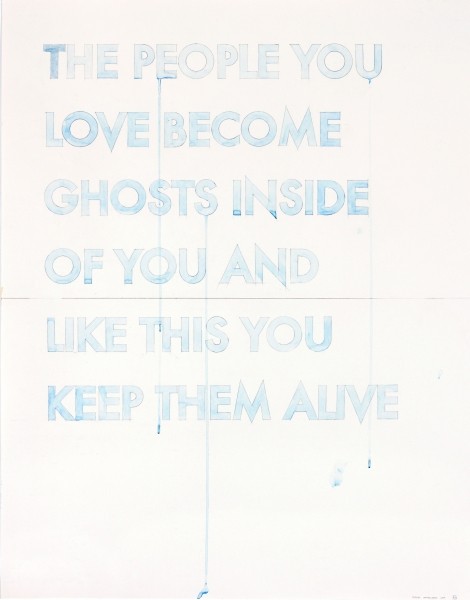 THE PEOPLE YOU
LOVE BECOME
GHOSTS INSIDE
OF YOU AND
LIKE THIS YOU
KEEP THEM ALIVE